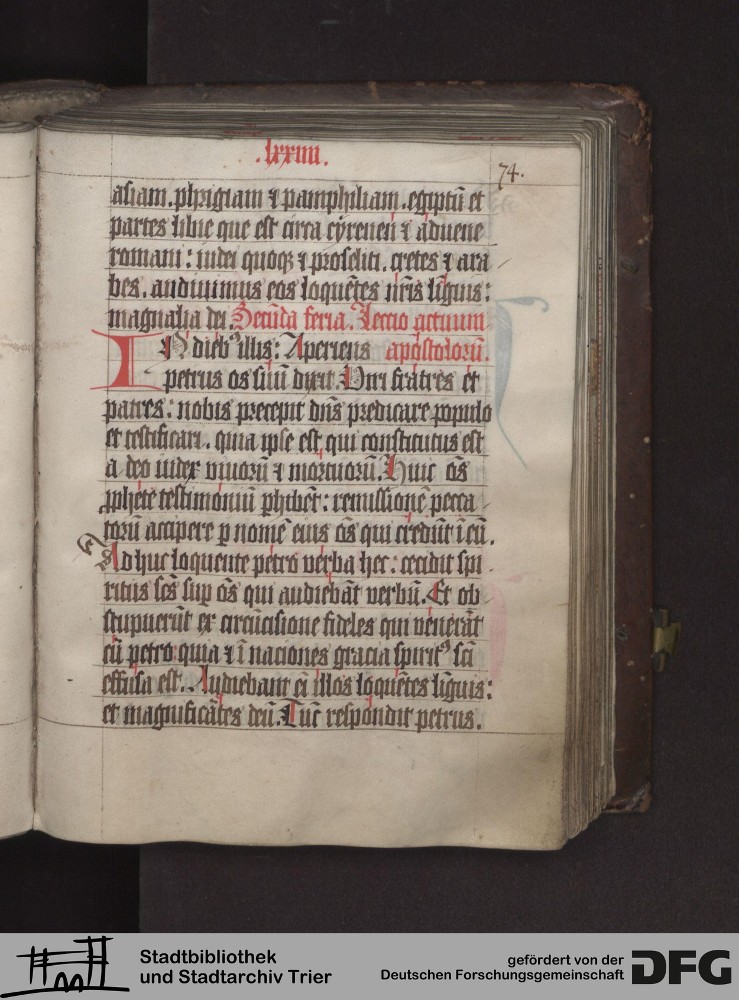 .lxxiiii.
74.
asiam. phrigiam ⁊ pamphiliam. egiptū et
partes libie que est circa cyrenen ⁊ aduene
romani: iudei quoqꝫ ⁊ proseliti. cretes ⁊ ara
bes. audiuimus eos loquētes nr̄is liguis:
magnalia dei. Secūda feria. Lectio actuum
IN dieb⁹ illis: Aperiens apostolorū.
petrus os suū dixit. Viri fratres et
patres: nobis precepit dn̄s predicare populo
et testificari. quia ipse est qui constitutus est
a deo iudex viuorū ⁊ mortuorū. Huic om̄s
ꝓphete testimoniū ꝑhibēt: remissionē pecca
torū accipere ꝑ nomē eius om̄s qui credūt ī eū.
Adhuc loquente petro verba hec: cecidit spi
ritus sc̄s suꝑ om̄s qui audiebāt verbū. Et ob
stupuerūt ex circūcisione fideles qui venerāt
cū petro quia ⁊ ī naciones gracia spirit⁹ sc̄i
effusa est. Audiebant em̄ illos loquētes liguis:
et magnificātes deū. Tūc respondit petrus.
Stadtbibliothek
und Stadtarchiv Trier
gefördert von der
Deutschen Forschungsgemeinschaft
DFG